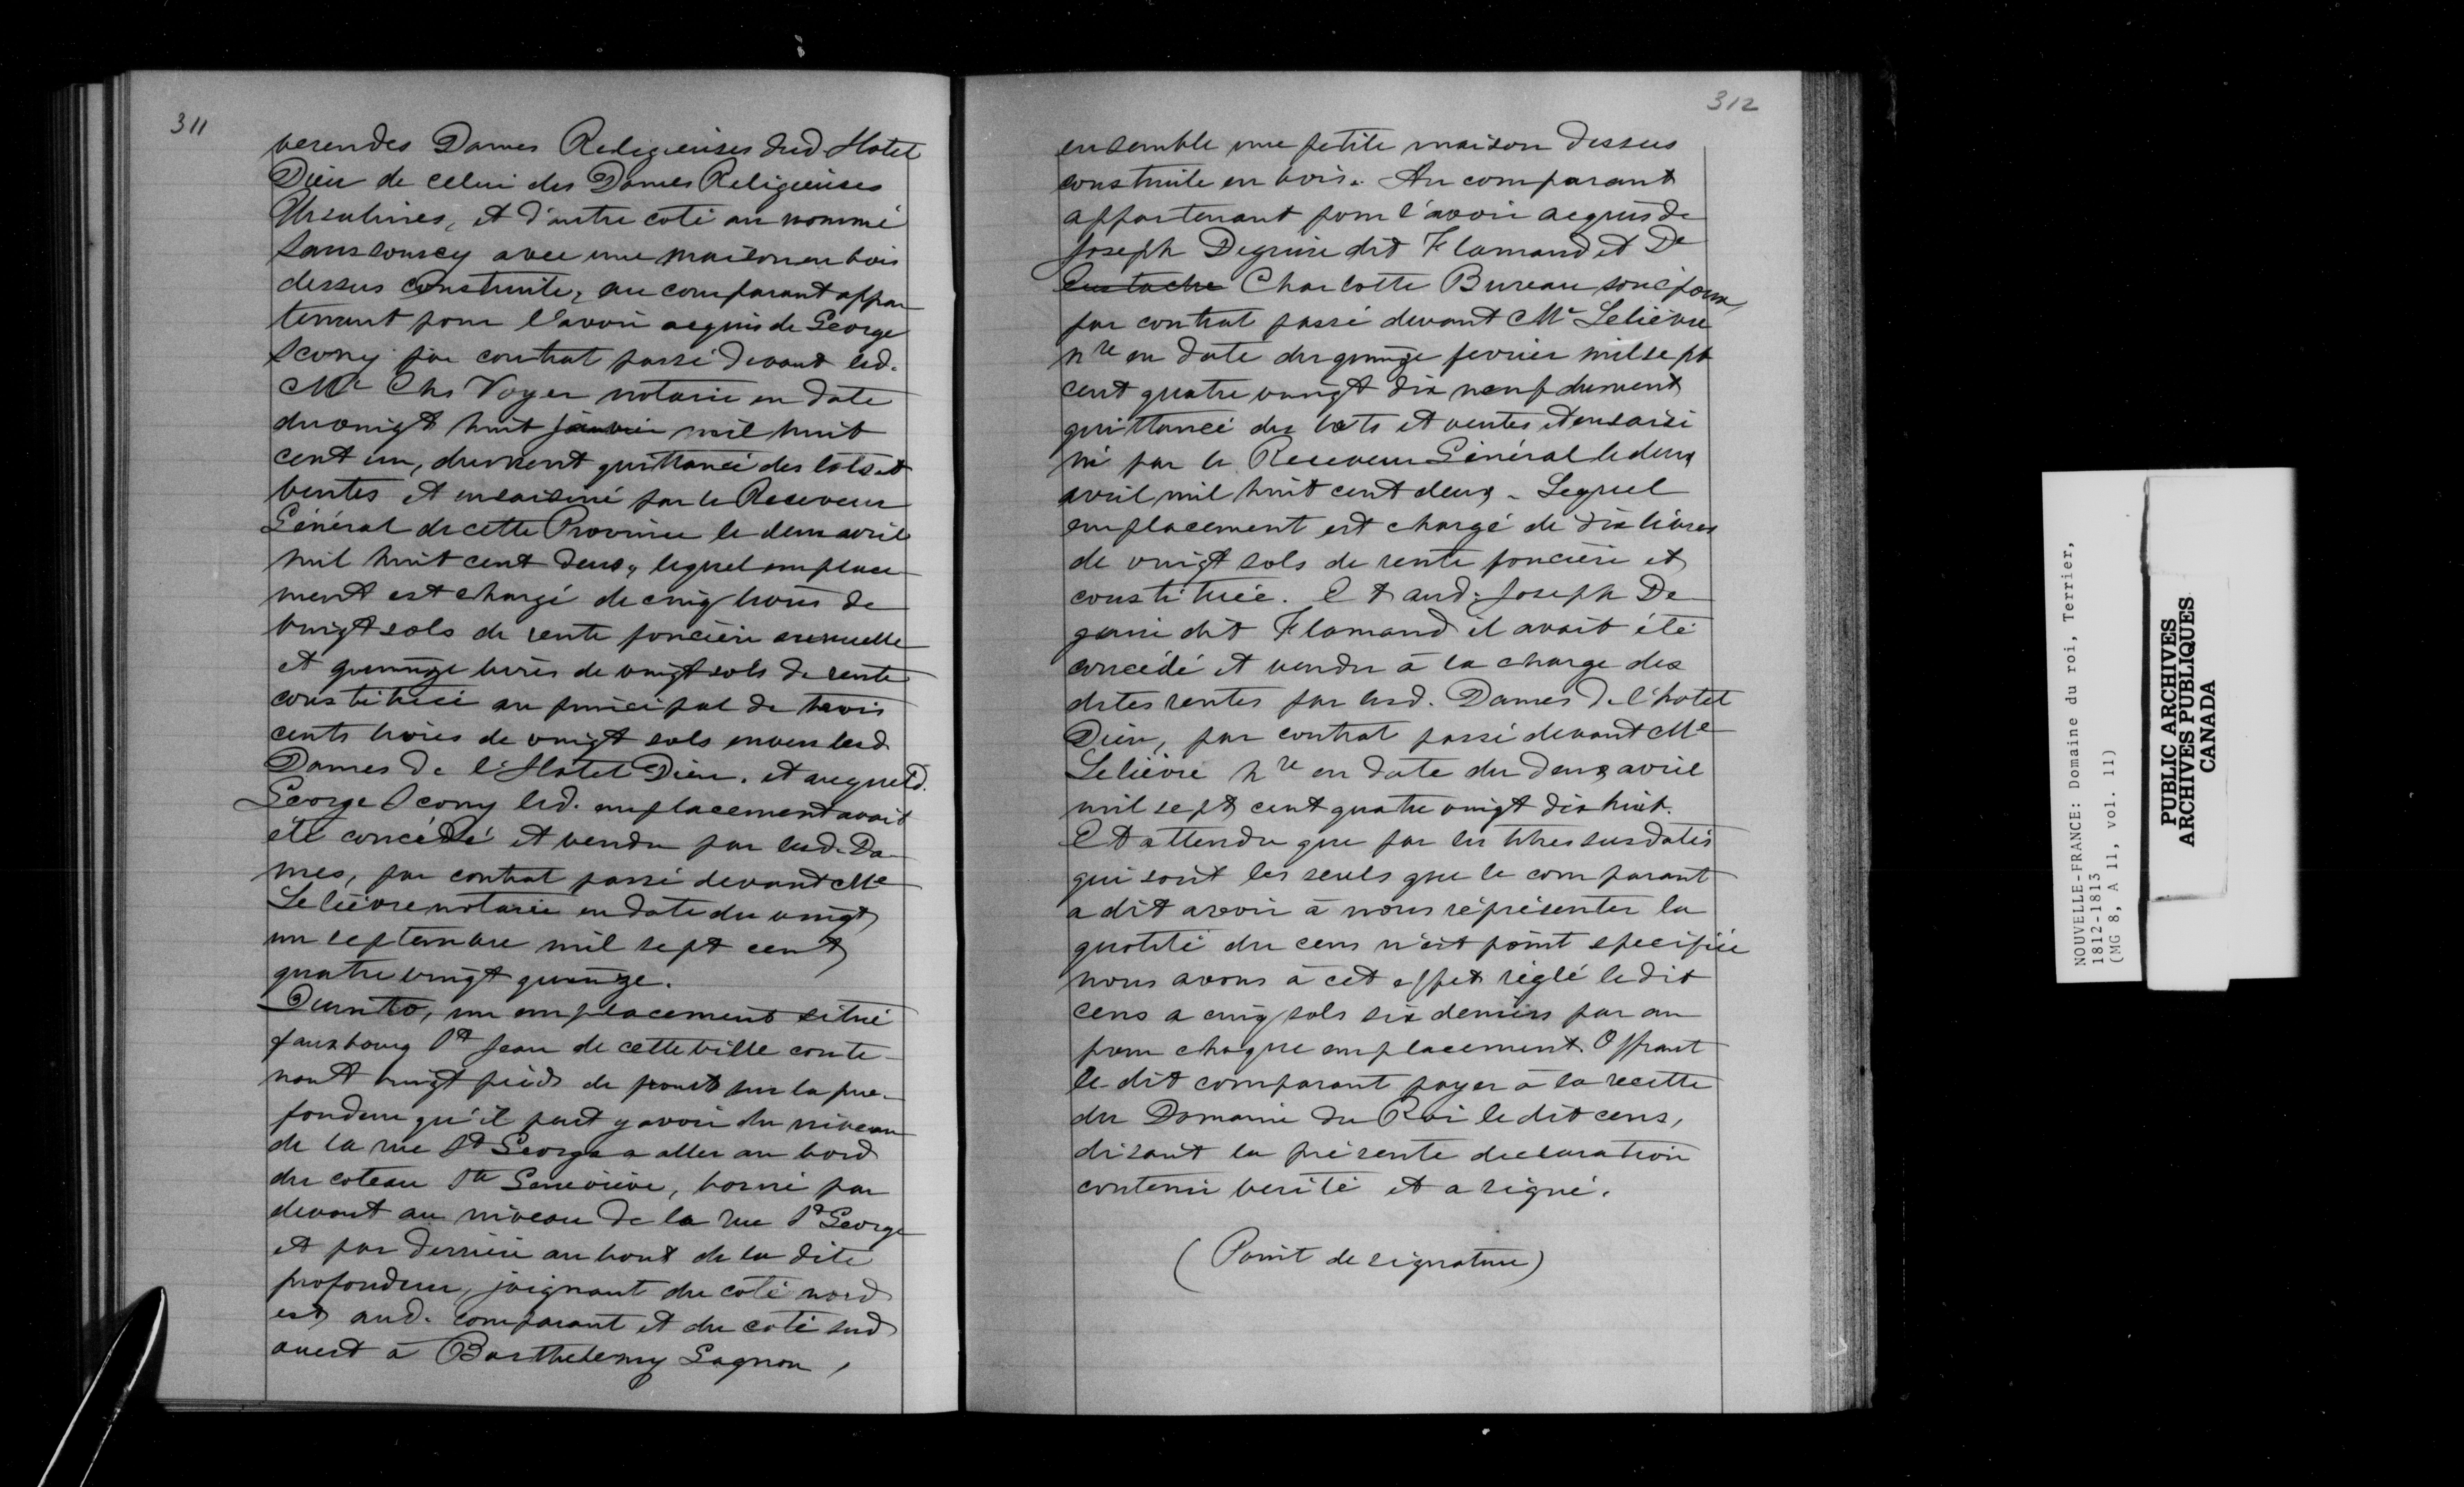 311
verendes Dames Religieuses dud Hotel
Dieu de celui des Dames Religieuses
Ursulines, et d'autre coté au nommé
Sanssoucy avec une maison en bois
dessus construite, au comparant appar
tenant pour l'avoir acquis de George
Scony par contrat passé devant led.
Me Chs Voyer notaire en date
du vingt huit janvier mil huit
cent un, dument quittancé des lots et
ventes et ensaisiné par le Receveur
Général de cette Province le deux avril
mil huit cent deux, lequel emplace
ment est chargé de cinq livres de
vingt sols de rente foncière annuelle
et quinze livres de vingt sols de rente
constituée au principal de trois
cents livres de vingt sols envers lesd
Dames de l'Hotel Dieu. et auquel d.
George Scony led. emplacement avait
été concédé et vendu par lesd. Da-
mes, par contrat passé devant Me
Lelièvre notaire en date du vingt
un septembre mil sept cent
quatre vingt quinze.
Quinto, un emplacement situé
fauxbourg St Jean de cette ville conte-
nant vingt pieds de front sur la pro-
fondeur qu'il peut y avoir du niveau
de la rue St George a aller au bord
du coteau Ste Geneviève, borné par
devant au niveau de la rue St George
et par derrière au bout de la dite
profondeur, joignant du coté nord
est aud. comparant et du coté sud
ouest à Barthelemy Gagnon,
312
ensemble une petite maison dessus
construite en bois. Au comparant
appartenant pour l'avoir acquis de
Joseph Deguise dit Flamand et De
Eustache Charlotte Bureau son épouse
par contrat passé devant Me Lelièvre
nre en date du quinze fevrier mil sept
cent quatre vingt dix neuf dument
quittancé des lots et ventes et ensaisi
né par le Receveur Général le deux
avril mil huit cent deux. Lequel
emplacement est chargé de dix livres
de vingt sols de rente foncière et
constituée. Et aud. Joseph De
guise dit Flamand il avait été
concédé et vendu à la charge des
dites rentes par lesd. Dames de l'hotel
Dieu, par contrat passé devant Me
Lelièvre nre en date du deux avril
mil sept cent quatre vingt dix huit.
Et attendu que par les titres susdatés
qui sont les seuls que le comparant
a dit avoir à nous réprésenter la
quotité du cens n'est point specifiée
nous avons à cet effet réglé le dit
cens a cinq sols six deniers par an
pour chaque emplacement. Offrant
le dit comparant payer à la recette
du Domaine du Roi le dit cens,
disant la présente declaration
contenir verité et a signé.
(Point de signature)
NOUVELLE-FRANCE: Domaine du roi, Terrier,
1812-1813
(MG 8, A 11, vol. 11)
PUBLIC ARCHIVES
ARCHIVES PUBLIQUES
CANADA